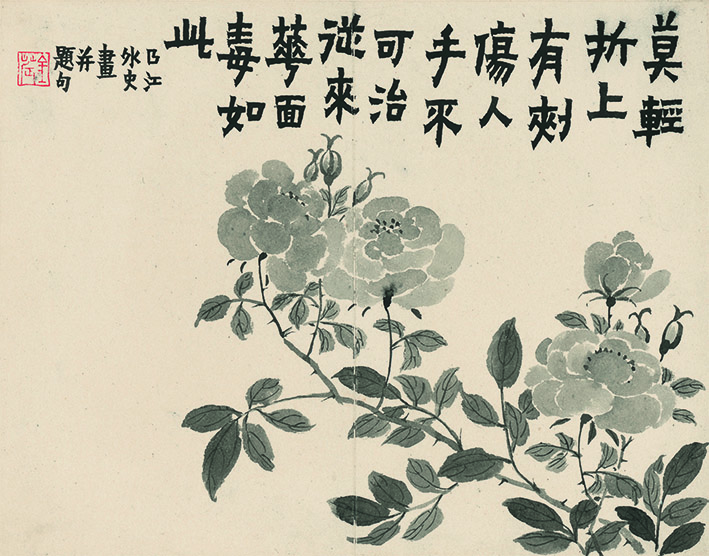 莫輕
折上
有刺
傷人
手不
可治
從來
華面
毒如
此
曲江
外史
畫
并
題句